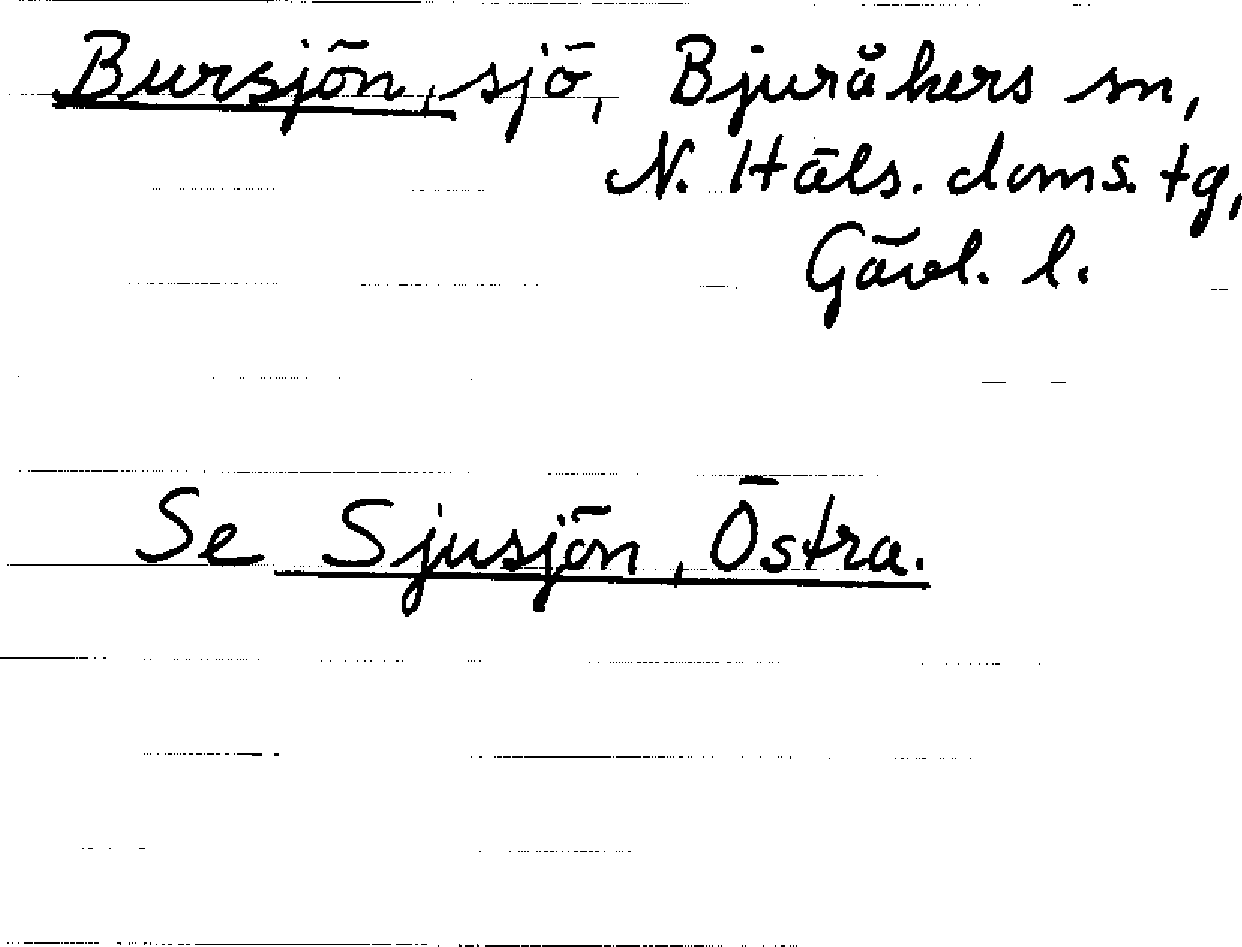 Bursjön, sjö, Bjuråkers sn,
N. Häls. doms. tg,
Gävl. l.
Se Sjusjön, Östra.